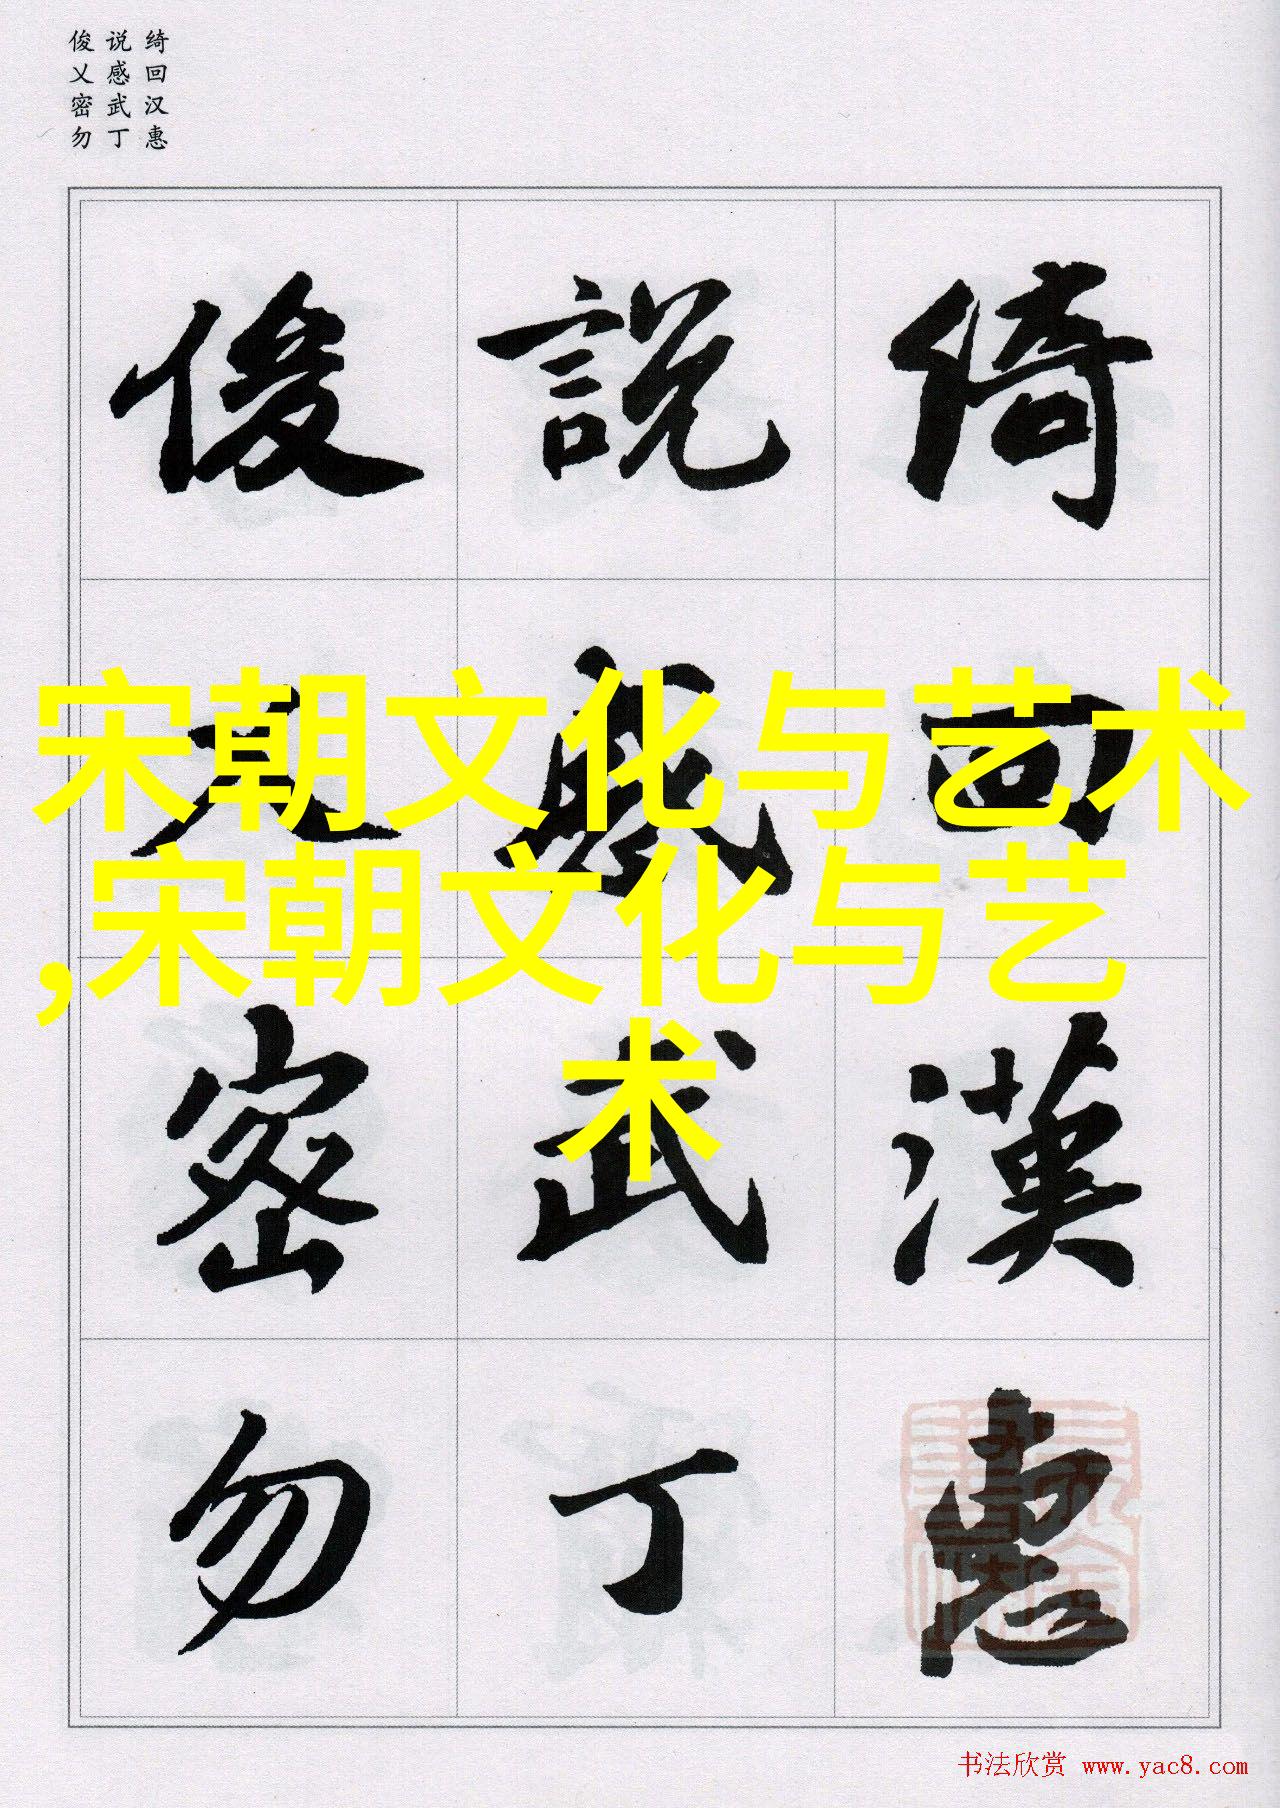 绮回汉惠
说感武丁
俊乂密勿
綺回漢惠
說感武丁
俊乂密勿
宋朝文化与艺术
,宋朝文化与艺
术
书法欣赏 www.yac8.com